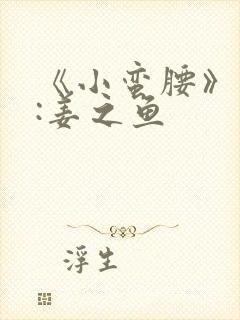 《小蛮腰》
:姜之鱼
浮生